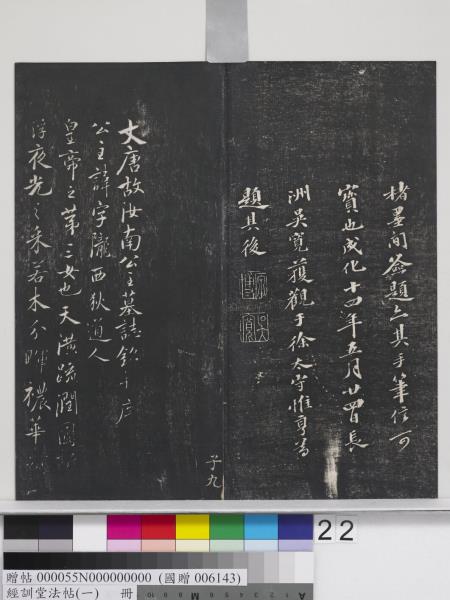 楮墨間籤題亦其手筆信可
寶也成化十四年五月廿四日長
洲吳寬獲觀于徐太守惟亨為
題其後
大唐故汝南公主墓誌銘并序
公主諱字隴西狄道人
皇帝之第三女也天潢疏潤圓折
浮夜光之采若木分暉穠華
子九
22
贈帖 000055N000000000 (國贈 006143)
經訓堂法帖(一) 冊